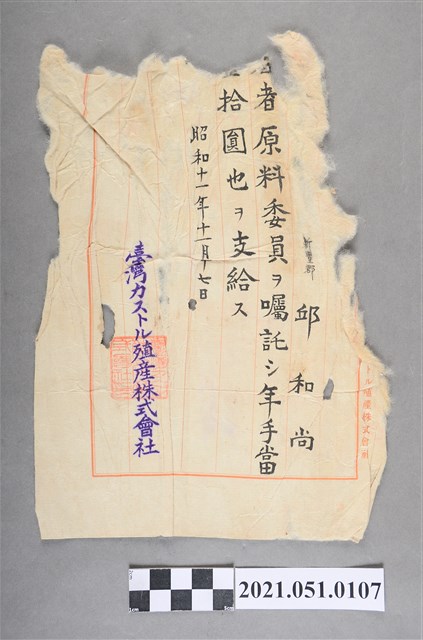 新豐郡
邱和尚
者原料委員ヲ囑託シ年手當
拾圓也ヲ支給ス
昭和十一年十一月十七日
臺灣カストル殖產株式會社
トル殖產株式會社
1cm
5cm
2021.051.0107